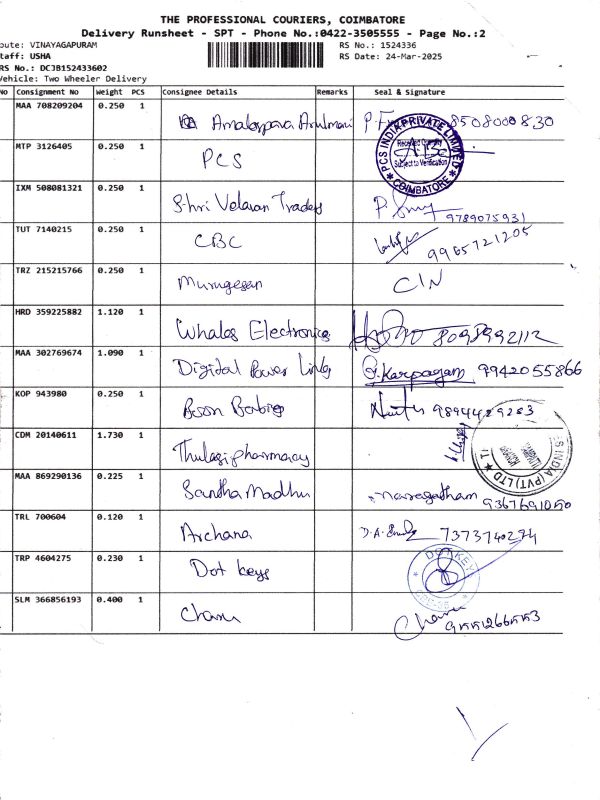 THE PROFESSIONAL COURIERS, COIMBATORE
Delivery Runsheet - SPT - Phone No.:0422-3505555 - Page No.:2
oute: VINAYAGAPURAM RS No.: 1524336
taff: USHA RS Date: 24-Mar-2025
RS No.: DCJB152433602
Vehicle: Two Wheeler Delivery
No Consignment No Weight PCS Consignee Details Remarks Seal & Signature
MAA 708209204 0.250 1 8508000830
MTP 3126405 0.250 1 PCS
PCS INDIA PRIVATE LIMITED
Subject to Verification
COIMBATORE
IXM 508081321 0.250 1 Shri Velavan Traders 9789075931
TUT 7140215 0.250 1 CBC 9965721205
TRZ 215215766 0.250 1 Murugesan C/N
HRD 359225882 1.120 1 Whales Electronics 8098992112
MAA 302769674 1.090 1 Digital Power Links G.Karpagam 9942055866
KOP 943980 0.250 1 9894429283
CDM 20140611 1.730 1 Thulasipharmacy
S INDIA (PVT) LTD
MAA 869290136 0.225 1 Santha Madhu 9367691050
TRL 700604 0.120 1 Archana 7373740274
TRP 4604275 0.230 1 Dot keys
DOT KEY
SLM 366856193 0.400 1 Charu